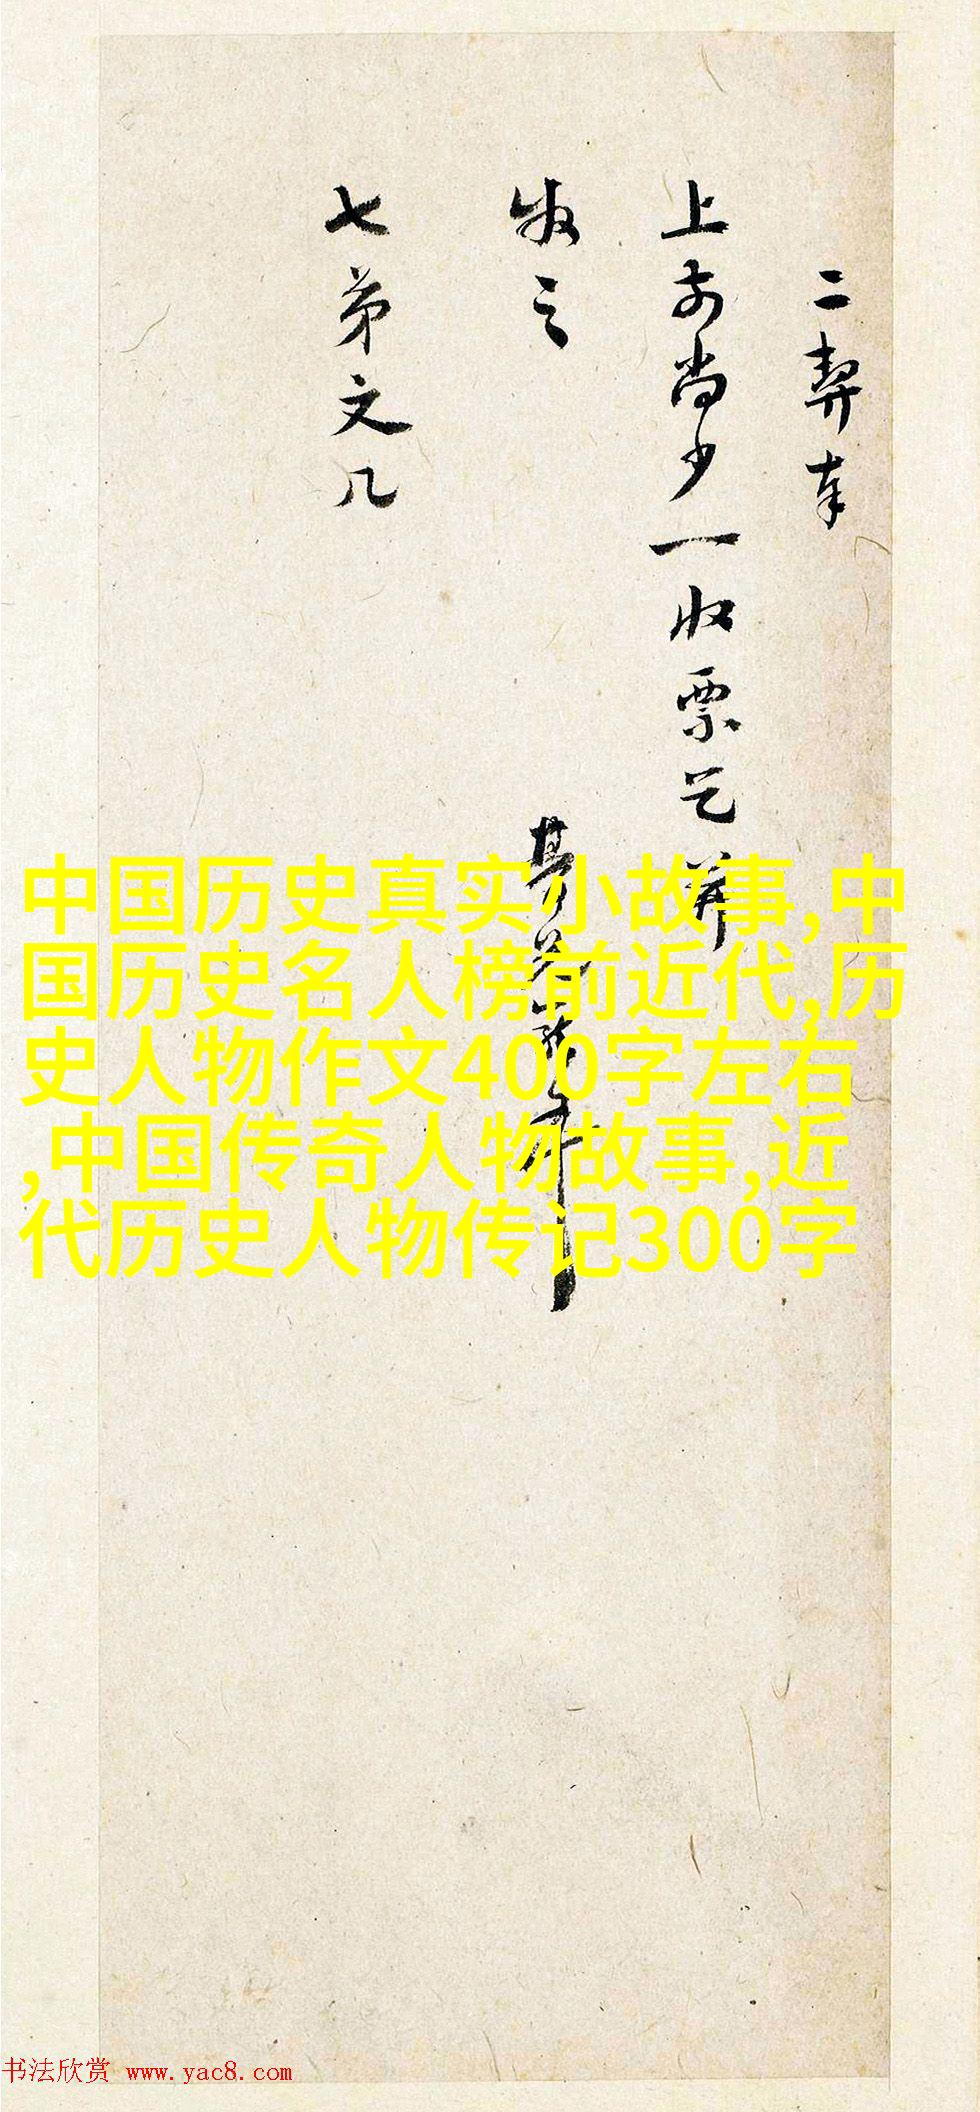 二契奉
上前尚少一收票乞并
收之
七弟文几
中国历史真实小故事,中
国历史名人榜前近代,历
史人物作文400字左右
,中国传奇人物故事,近
代历史人物传记300字
书法欣赏 www.yac8.com